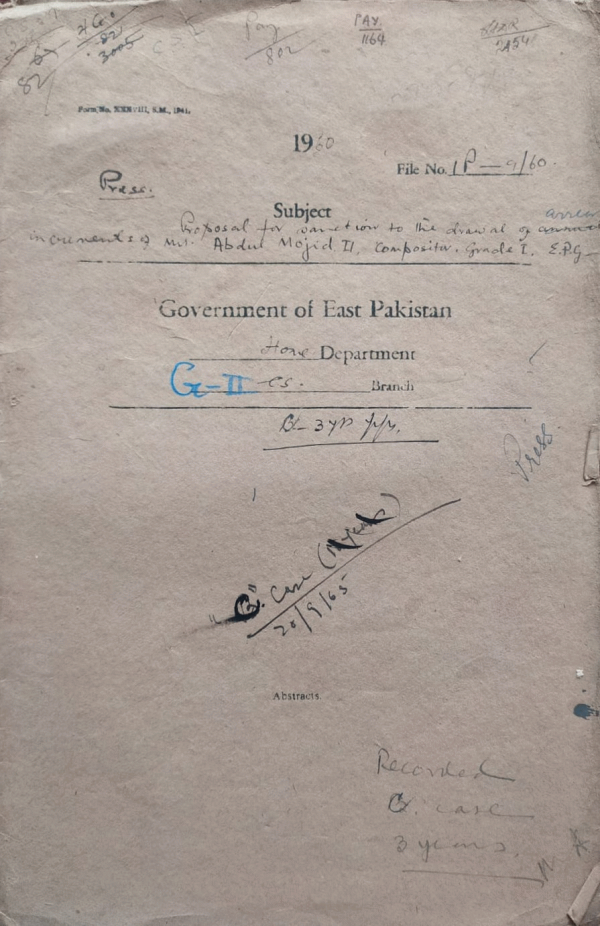 82
82
3005
Pay
802
PAY
1164
Form No. XXXVIII, S.M., 1941.
1960
File No. 1P—9/60.
Press.
Subject
arrear
Proposal for sanction to the drawal of annual
increments of Mr. Abdul Mojid II, Compositor, Grade I, E.P.G—
Government of East Pakistan
Home Department
G-II Branch
Press
Case
20/9/65
Abstracts.
Recorded
case
3 years.